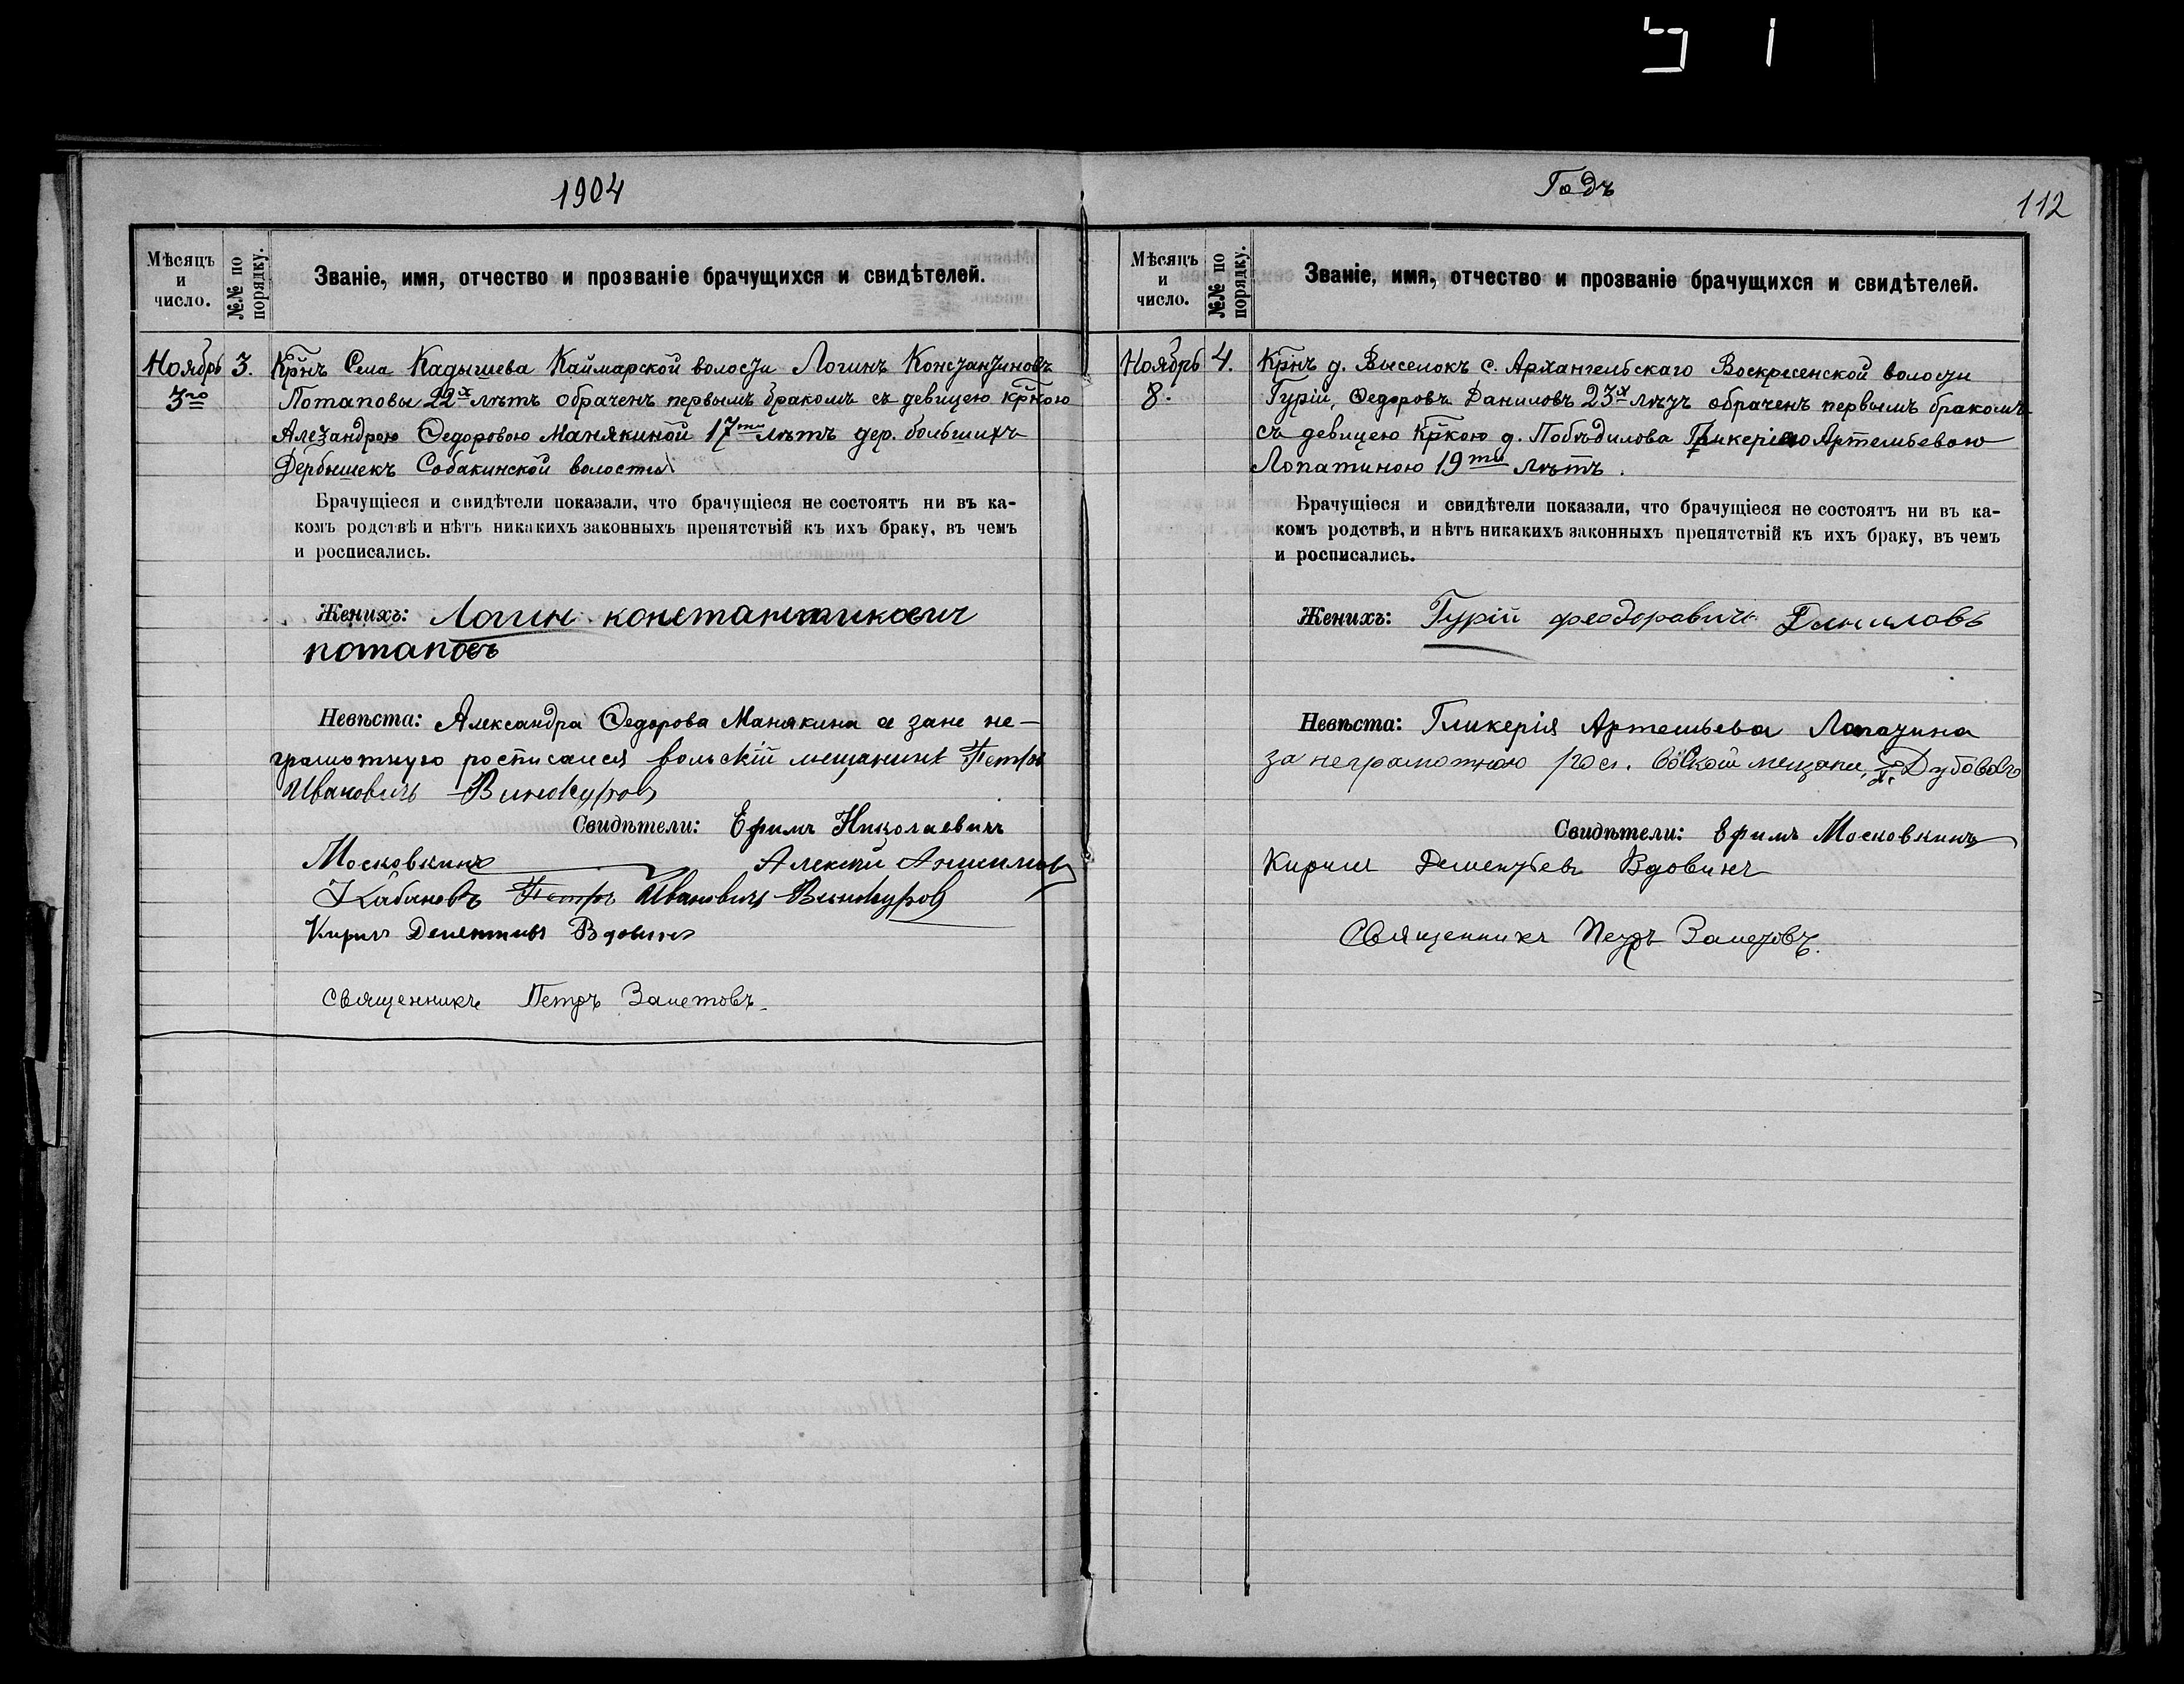 1904
Мѣсяцъ и число.
№№ по порядку.
Званіе, имя, отчество и прозваніе брачущихся и свидѣтелей.
Ноябрь 3. Крнъ Села Кадышева Каймарской волости Логинъ Константиновъ
3го Потаповы 22х лѣтъ обраченъ первымъ бракомъ съ девицею крною
Александрою Ѳедоровою Манякиной 17ти лѣтъ дер. большихъ
Дербышекъ Собакинской волости
Брачущіеся и свидѣтели показали, что брачущіеся не состоятъ ни въ ка-
комъ родствѣ и нѣтъ никакихъ законныхъ препятствій къ ихъ браку, въ чемъ
и росписались.
Женихъ: Логин константинович
потаповъ
Невѣста: Александра Ѳедорова Манякина а зане не-
грамотную росписался вольскій мещанинъ Петръ
Ивановичъ Винокуров
Свидѣтели: Ефимъ Николаевичъ
Московкинъ Алексѣй Анисимов
Кабановъ Петръ Ивановичъ Винокуров
Кирилъ Дементьев Вдовинъ
Священникъ Петръ Заметовъ.
Годъ
112
Мѣсяцъ и число.
№№ по порядку.
Званіе, имя, отчество и прозваніе брачущихся и свидѣтелей.
Ноябрь 4. Крнъ д. Выселокъ с. Архангельскаго Воскресенской волости
8. Гурій Ѳедоровъ Даниловъ 23х лѣтъ обраченъ первымъ бракомъ
съ девицею Кркою д. Побѣдилова Гликеріею Артемьевою
Лопатиною 19ти лѣтъ.
Брачущіеся и свидѣтели показали, что брачущіеся не состоятъ ни въ ка-
комъ родствѣ, и нѣтъ никакихъ законныхъ препятствій къ ихъ браку, въ чемъ
и росписались.
Женихъ: Гурій феодоравичъ Даниловъ
Невѣста: Гликерія Артемьева Лопатина
за неграмотною рос. мещани. Дубововъ
Свидѣтели: Ефимъ Московкинъ
Кирилл Дементьевъ Вдовинъ
Священникъ Петръ Заметовъ.